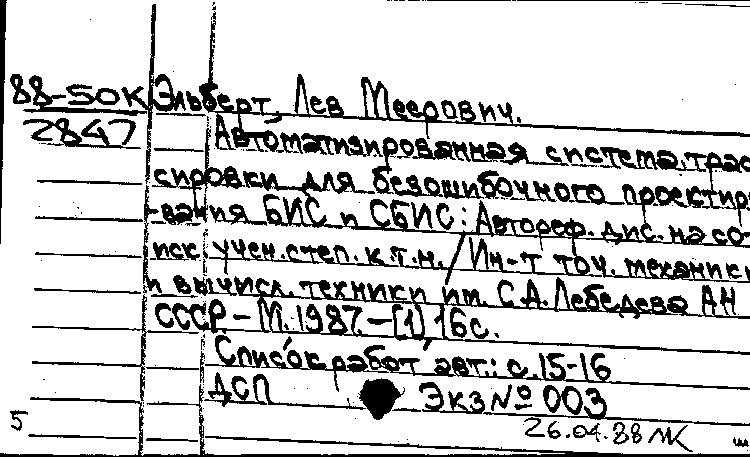 88-50К Эльберт, Лев Меерович.
2847 Автоматизированная система трас
сировки для безошибочного проектир
-вания БИС и СБИС: Автореф. дис. на со
иск. учен. степ. к.т.н. / Ин-т точ. механики
и вычисл. техники им. С.А. Лебедева АН
СССР. - М. 1987. - [1], 16 с.
Список работ авт.: с. 15-16
ДСП Экз № 003
5 26.04.88